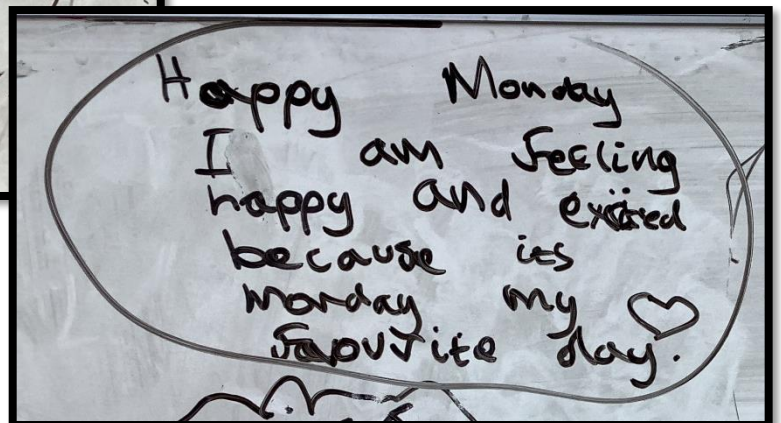 Happy Monday
I am feeling
happy and excited
because its
monday my
favourite day.